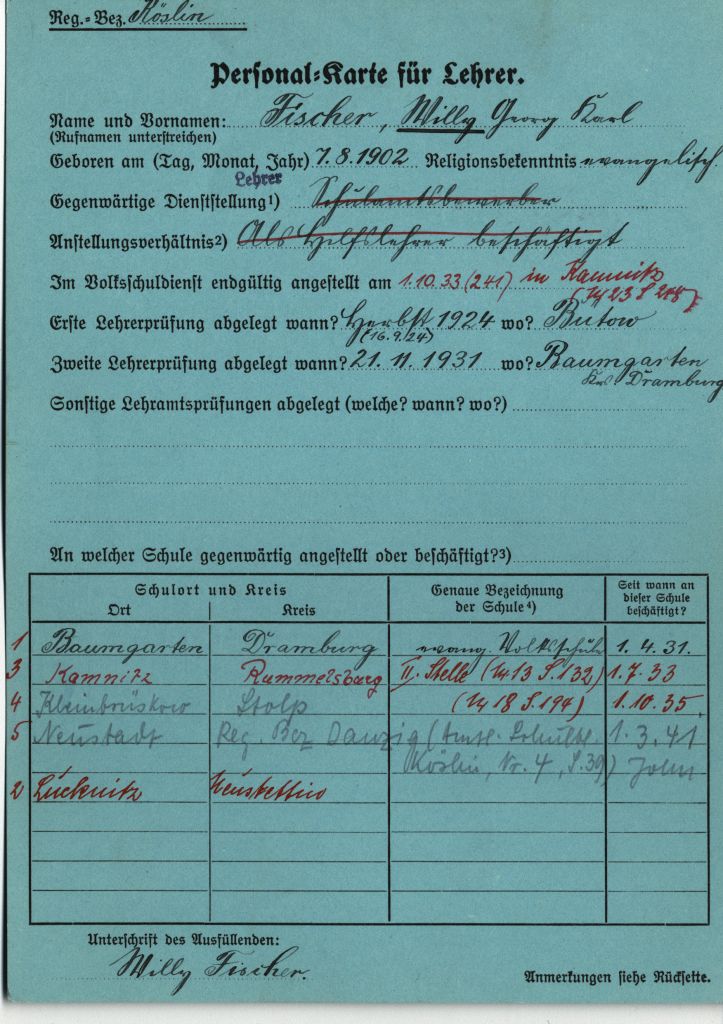 Reg.-Bez. Köslin
Personal-Karte für Lehrer.
Name und Vornamen: Fischer, Willy Georg Karl
(Rufnamen unterstreichen)
Geboren am (Tag, Monat, Jahr) 7.8.1902 Religionsbekenntnis evangelisch.
Lehrer
Gegenwärtige Dienststellung¹) Schulamtsbewerber
Anstellungsverhältnis²) Als Hilfslehrer beschäftigt
Im Volksschuldienst endgültig angestellt am 1.10.33 (241) in Kamnitz
Erste Lehrerprüfung abgelegt wann? Herbst 1924 wo? Bütow
(16.9.24)
Zweite Lehrerprüfung abgelegt wann? 21.11.1931 wo? Baumgarten
Krs Dramburg
Sonstige Lehramtsprüfungen abgelegt (welche? wann? wo?)
An welcher Schule gegenwärtig angestellt oder beschäftigt?³)
Schulort und Kreis
Ort Kreis
Genaue Bezeichnung
der Schule⁴)
Seit wann an
dieser Schule
beschäftigt?
1 Baumgarten Dramburg evang. Volksschule 1.4.31.
3 Kamnitz Rummelsburg II. Stelle (13 S. 132) 1.7.33
4 Kleinbrüskow Stolp (18 S. 194) 1.10.35.
5 Neustadt Reg. Bez Danzig (Amtl. Schulbl. 1.3.41
Köslin, Nr. 4, S. 39)
2 Lucknitz Neustettin
Unterschrift des Ausfüllenden:
Willy Fischer.
Anmerkungen siehe Rückseite.